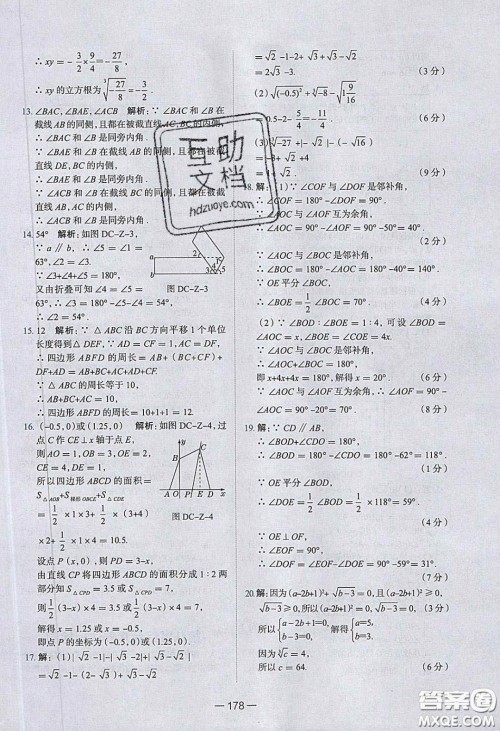 ∴ xy = - 3/2 × 9/4 = - 27/8 ,
∴ xy 的立方根为 ∛(-27/8) = - 3/2 .
13. ∠BAC, ∠BAE, ∠ACB 解析: ∵ ∠BAC 和 ∠B 在
截线 AB 的同侧, 且都在被截直线 AC, BC 的内侧,
∴ ∠BAC 和 ∠B 是同旁内角.
∵ ∠BAE 和 ∠B 在截线
且都在被截
∴ ∠BAE 和 ∠B 是同旁内角.
∵ ∠ACB 和 ∠B 在截线
直线 AB, AC 的内侧,
∴ ∠ACB 和 ∠B 是同旁内角.
14. 54° 解析: 如图 DC-Z-3,
∵ a // b, ∴ ∠5 = ∠1 =
63°, ∠2 = ∠3,
∵ ∠3+∠4+∠5 = 180°,
又由折叠可知 ∠4 = ∠5 = 63°,
∴ ∠3 = 180°-∠5-∠4 = 54°,
∴ ∠2 = 54°.
图 DC-Z-3
15. 12 解析: ∵ △ABC 沿 BC 方向平移 1 个单位
长度得到 △DEF, ∴ AD = CF = 1, AC = DF,
∴ 四边形 ABFD 的周长 = AB + (BC+CF) +
DF+AD = AB+BC+AC+AD+CF.
∵ △ABC 的周长等于 10,
∴ AB+BC+AC = 10,
∴ 四边形 ABFD 的周长 = 10+1+1 = 12.
16. (-0.5, 0) 或 (1.25, 0) 解析: 如图 DC-Z-4, 过
点 C 作 CE⊥x 轴于点 E,
则 AO = 1, OB = 3, OE =
2, EC = 4, DE = 1, AD = 4,
所以四边形 ABCD 的面积 =
S△AOB+S梯形OBCE+S△CDE
= 1/2 ×1×3+ 1/2 × (3+4)
×2+ 1/2 ×1×4 = 10.5.
图 DC-Z-4
设点 P (x, 0), 则 PD = 3-x,
由直线 CP 将四边形 ABCD 的面积分成 1∶2 两
部分知 S△CPD = 3.5 或 S△CPD = 7,
则 1/2 (3-x)×4 = 3.5 或 1/2 (3-x)×4 = 7,
解得 x = 1.25 或 x = -0.5,
即点 P 的坐标为 (-0.5, 0) 或 (1.25, 0).
17. 解: (1) | √2 -1 | - | √3 -2 | + | √3 - √2 |
= √2 -1-(2- √3 )+ √3 - √2
= √2 -1-2+ √3 + √3 - √2
= 2√3 -3. (3 分)
(2) √(-0.5)² + ∛-8 - √(1 9/16)
= 0.5-2- 5/4 = - 11/4 . (6 分)
= - √2 +4. (9 分)
18. 解: (1) ∵ ∠COF 与 ∠DOF 是邻补角,
∴ ∠COF = 180°-∠DOF = 90°.
∵ ∠AOC 与 ∠AOF 互为余角,
∴ ∠AOC = 90°-∠AOF = 90°-50° = 40°.
(2 分)
∵ ∠AOC 与 ∠BOC 是邻补角,
∴ ∠BOC = 180°-∠AOC = 180°-40° = 140°.
∵ OE 平分 ∠BOC,
∴ ∠BOE = 1/2 ∠BOC = 70°. (4 分)
(2) ∵ ∠BOD∶∠BOE = 1∶4, 可设 ∠BOD =
∠AOC = x, ∠BOE = ∠COE = 4x.
∵ ∠AOC 与 ∠BOC 是邻补角,
∴ ∠AOC+∠BOC = 180°,
即 x+4x+4x = 180°, 解得 x = 20°. (6 分)
∵ ∠AOC 与 ∠AOF 互为余角,
∴ ∠AOF = 90°-∠AOC = 90°-20° = 70°.
(8 分)
19. 解: ∵ CD // AB,
∴ ∠BOD+∠CDO = 180°,
∴ ∠BOD = 180°-∠CDO = 180°-62° = 118°.
(2 分)
∵ OE 平分 ∠BOD,
∴ ∠DOE = 1/2 ∠BOD = 1/2 ×118° = 59°.
(4 分)
∵ OE⊥OF,
∴ ∠EOF = 90°,
∴ ∠DOF = ∠EOF-∠DOE = 90°-59° = 31°.
(7 分)
20. 解: 因为 (a-2b+1)² + √(b-3) = 0, 且 (a-2b+1)² ≥ 0,
√(b-3) ≥ 0, 所以 (a-2b+1)² = 0, √(b-3) = 0, (3 分)
所以 { a-2b+1=0, b-3=0. 解得 { a=5, b=3.
所以 ∛c = 4,
所以 c = 64. (6 分)
— 178 —
互助
文档
hdzuoye.com
答案圈
MXQE.COM